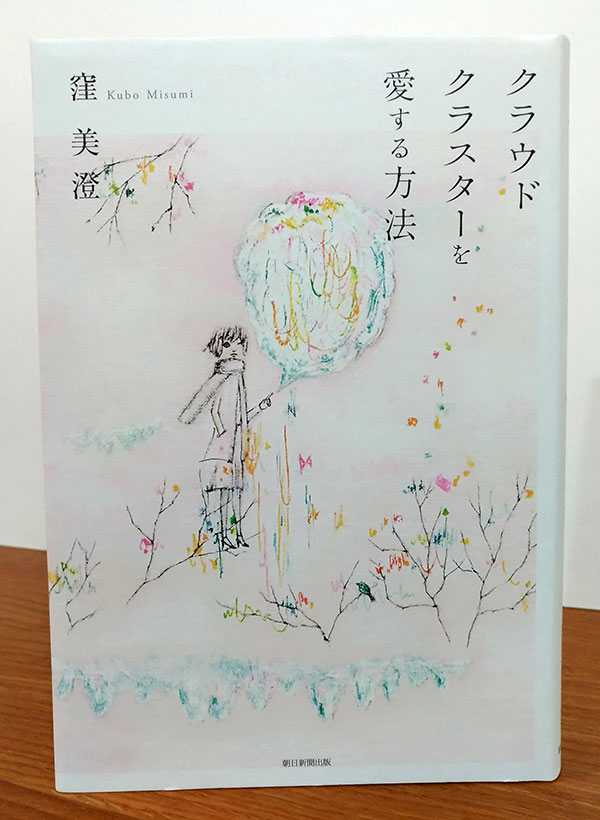 クラウド
クラスターを
愛する方法
窪 美澄
Kubo Misumi
朝日新聞出版